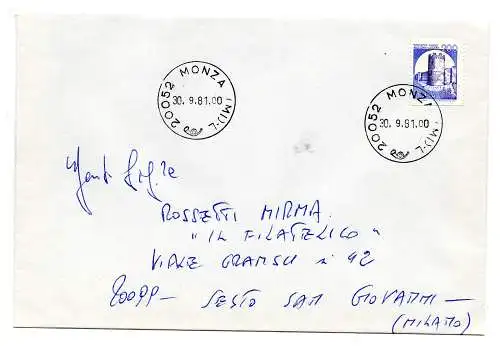 20052 MONZA (MI)-L
30. 9.81.00
20052 MONZA (MI)-L
30. 9.81.00
200
ROSSETTI MIRMA.
"IL FILATELICO"
VIALE GRAMSCI n° 42
20099 - SESTO SAN GIOVANNI -
(MILANO)